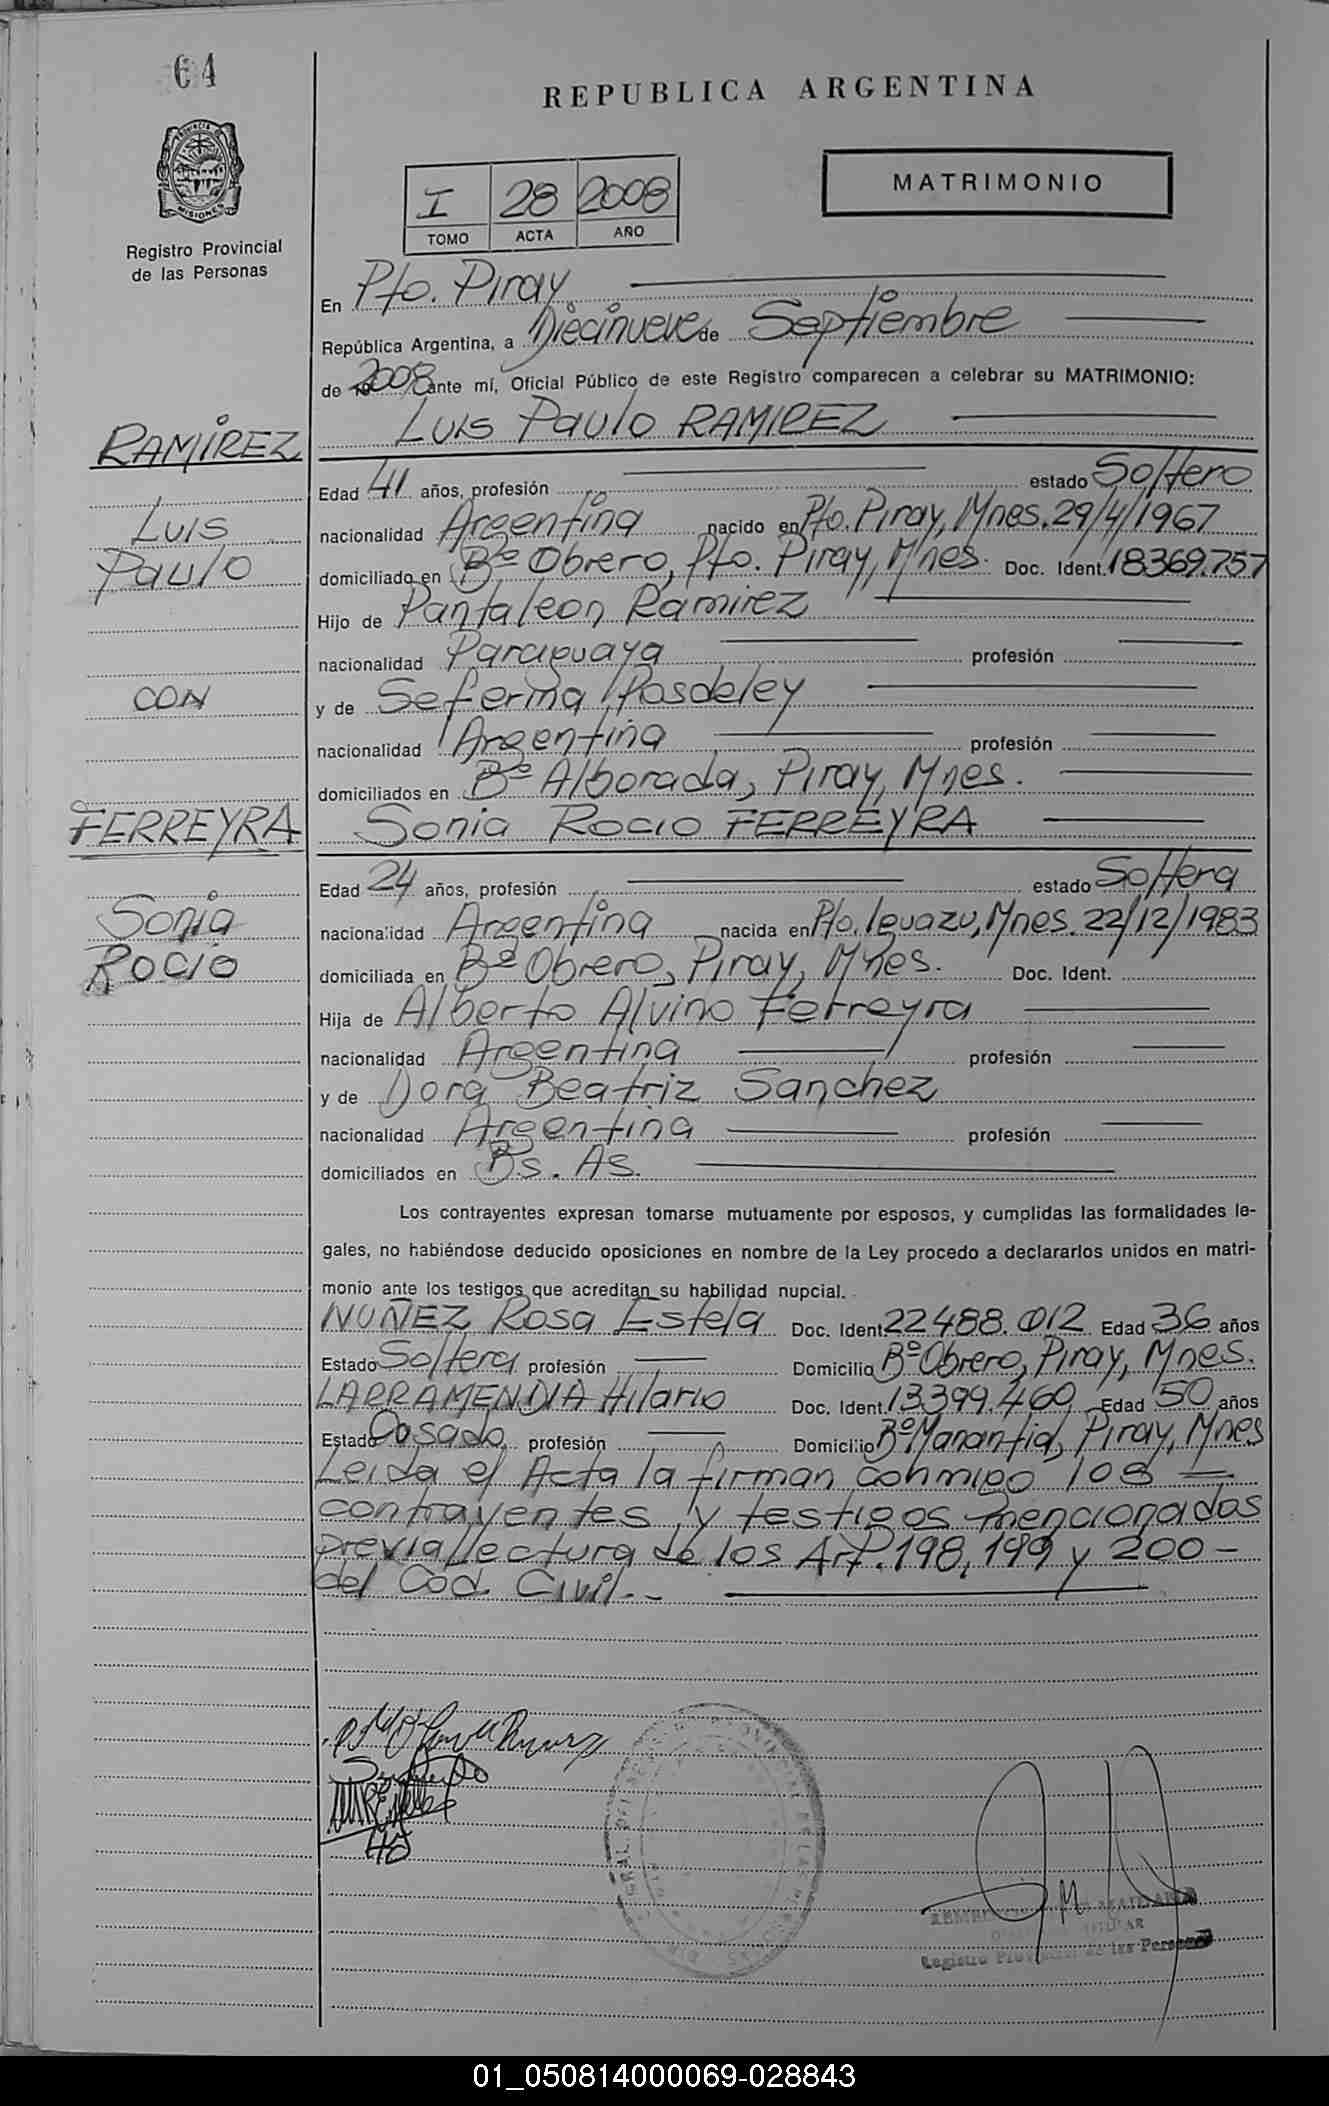 64
REPUBLICA ARGENTINA
MATRIMONIO
I 28 2008
TOMO ACTA AÑO
PROVINCIA DE
MISIONES
Registro Provincial
de las Personas
En Pto. Piray
República Argentina, a Diecinueve de Septiembre
de 2008 ante mí, Oficial Público de este Registro comparecen a celebrar su MATRIMONIO:
Luis Paulo RAMIREZ
RAMIREZ
Luis
Paulo
CON
FERREYRA
Sonia
Rocio
Edad 41 años, profesión estado Soltero
nacionalidad Argentina nacido en Pto. Piray, Mnes. 29/4/1967
domiciliado en Bº Obrero, Pto. Piray, Mnes. Doc. Ident. 18369.757
Hijo de Pantaleon Ramirez
nacionalidad Paraguaya profesión
y de Seferina Posdeley
nacionalidad Argentina profesión
domiciliados en Bº Alborada, Piray, Mnes.
Sonia Rocio FERREYRA
Edad 24 años, profesión estado Soltera
nacionalidad Argentina nacida en Pto. Iguazu, Mnes. 22/12/1983
domiciliada en Bº Obrero, Piray, Mnes. Doc. Ident.
Hija de Alberto Alvino Ferreyra
nacionalidad Argentina profesión
y de Dora Beatriz Sanchez
nacionalidad Argentina profesión
domiciliados en Bs. As.
Los contrayentes expresan tomarse mutuamente por esposos, y cumplidas las formalidades le-
gales, no habiéndose deducido oposiciones en nombre de la Ley procedo a declararlos unidos en matri-
monio ante los testigos que acreditan su habilidad nupcial.
NUÑEZ Rosa Estela Doc. Ident. 22488.012 Edad 36 años
Estado Soltera profesión Domicilio Bº Obrero, Piray, Mnes.
LARRAMENDIA Hilario Doc. Ident. 13399.460 Edad 50 años
Estado Casado profesión Domicilio Bº Manantial, Piray, Mnes
Leida el Acta la firman conmigo los —
contrayentes y testigos mencionados
previa lectura de los Art. 198, 199 y 200 -
del Cod. Civil.-
Registro Provincial de las Personas
01_050814000069-028843